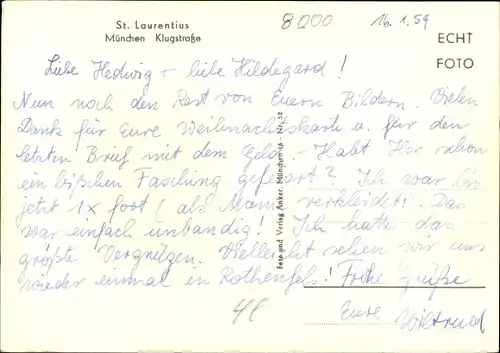 St. Laurentius
München Klugstraße
8000
16.1.59
ECHT
FOTO
Liebe Hedwig + liebe Hildegard!
Nun noch den Rest von Euern Bildern. Vielen
Dank für Eure Weihnachtskarte u. für den
letzten Brief mit dem Gelde. - Habt Ihr schon
ein bißchen Fasching gefeiert? Ich war bis
jetzt 1x fort (als Mann verkleidet!). Das
war einfach unbändig! Ich hatte das
größte Vergnügen. Vielleicht sehen wir uns
wieder einmal in Rothenfels! Frohe Grüße
Eure Wiltrud
Foto und Verlag Anker, München